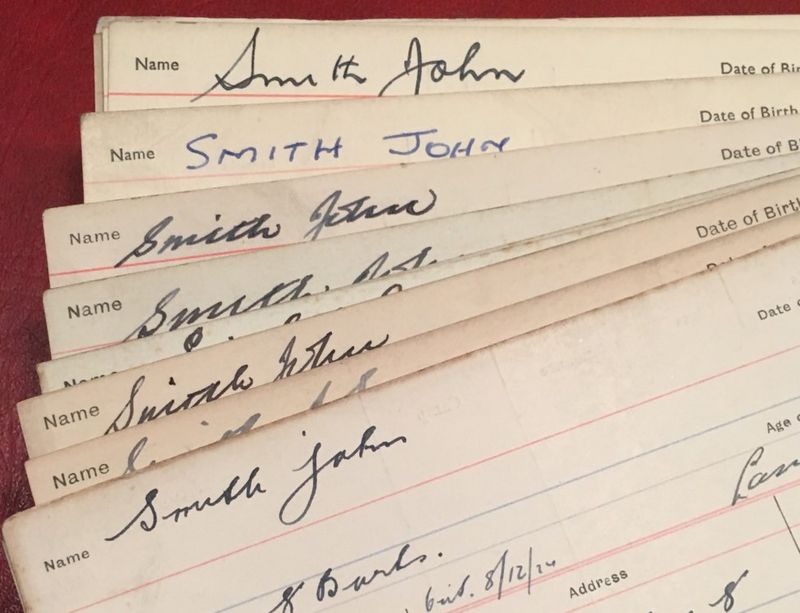 Name Smith John Date of Birth
Name SMITH JOHN Date of Birth
Name Smith John Date of B
Name Smith
Name
Name Smith John Date of Birth
Name
Name Smith John Date of
Age
8/12/24
Address